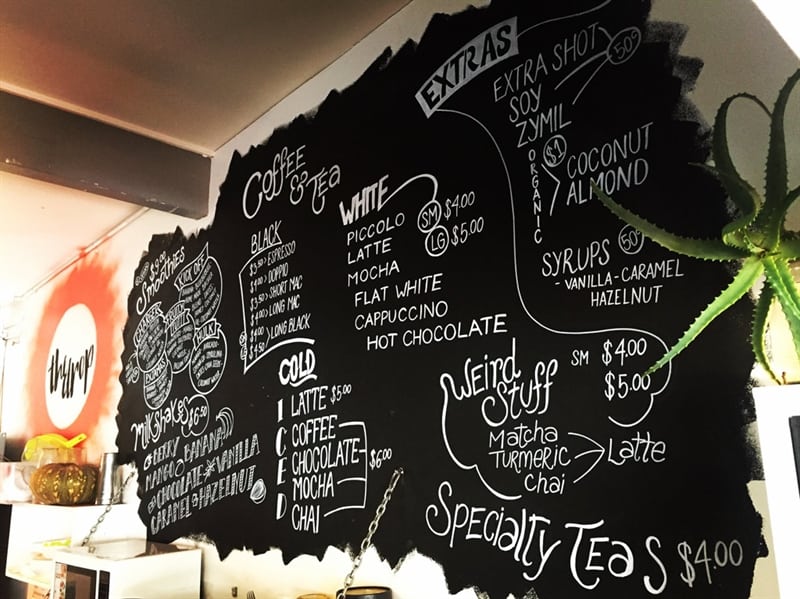 EXTRAS
EXTRA SHOT 50¢
SOY
ZYMIL
ORGANIC
$1
COCONUT
ALMOND
SYRUPS 50¢
- VANILLA - CARAMEL
HAZELNUT
Coffee
& Tea
BLACK
$3.50 ESPRESSO
DOPPIO
$3.50 SHORT MAC
$4.00 LONG MAC
$4.00 LONG BLACK
$4.50
WHITE
SM $4.00
LG $5.00
PICCOLO
LATTE
MOCHA
FLAT WHITE
CAPPUCCINO
HOT CHOCOLATE
COLD
ICED
LATTE $5.00
COFFEE
CHOCOLATE
MOCHA
CHAI
$6.00
Smoothies
Milkshakes $6.50
BERRY
MANGO BANANA
CHOCOLATE VANILLA
CARAMEL HAZELNUT
Weird
Stuff
SM $4.00
$5.00
Matcha
TURMERIC
Chai
Latte
SPECIALTY TEAS $4.00
thrrop